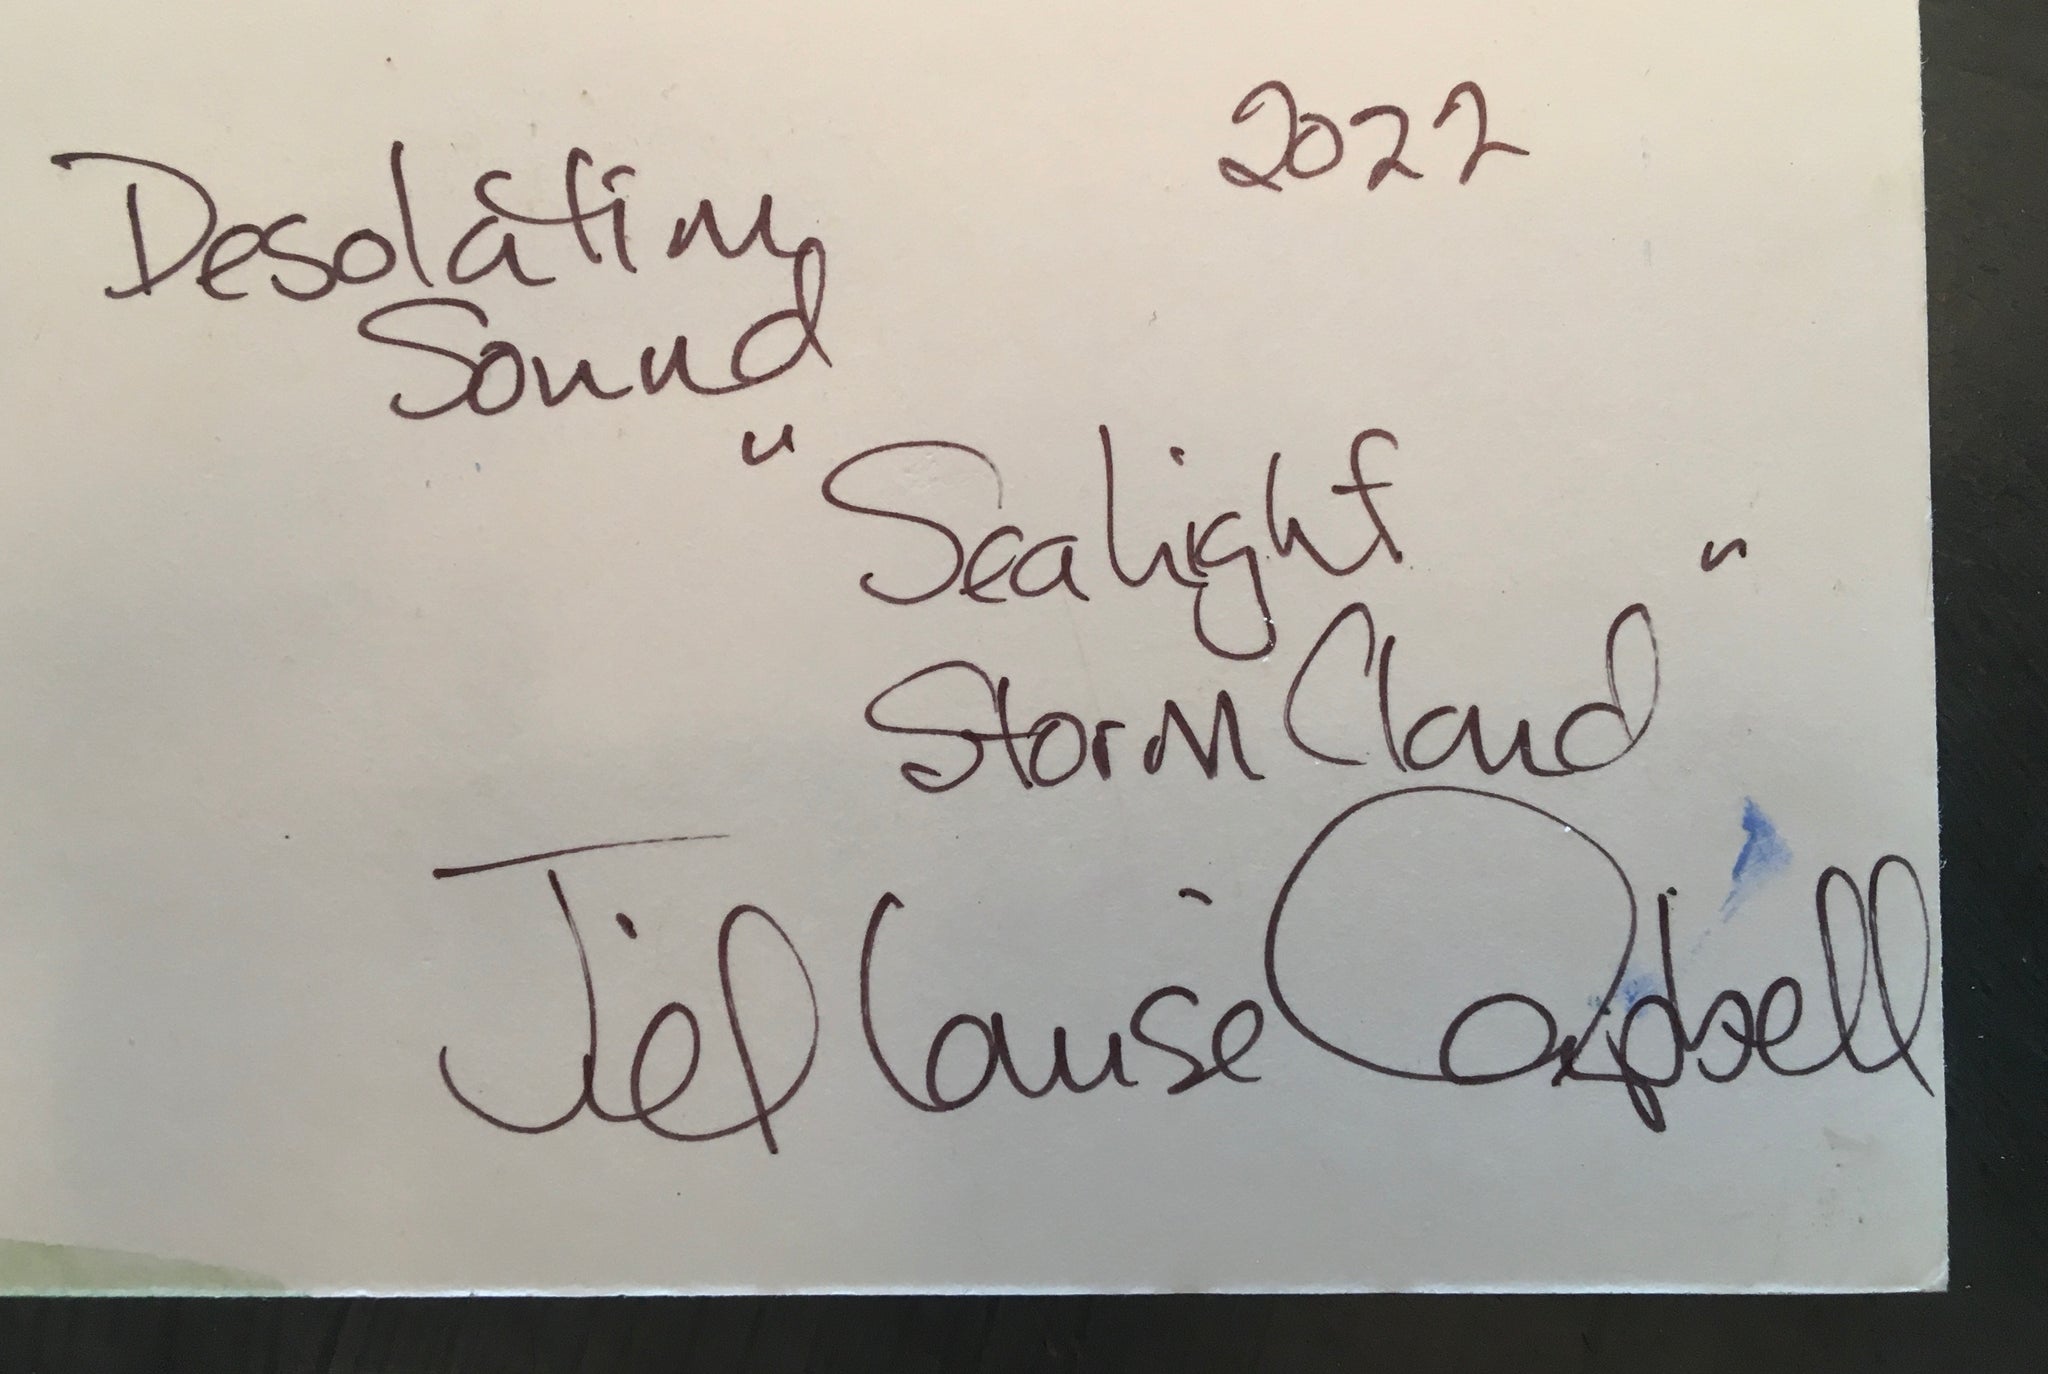 2022
Desolation
Sound
"Sealight
Storm Cloud"
Louise Campbell